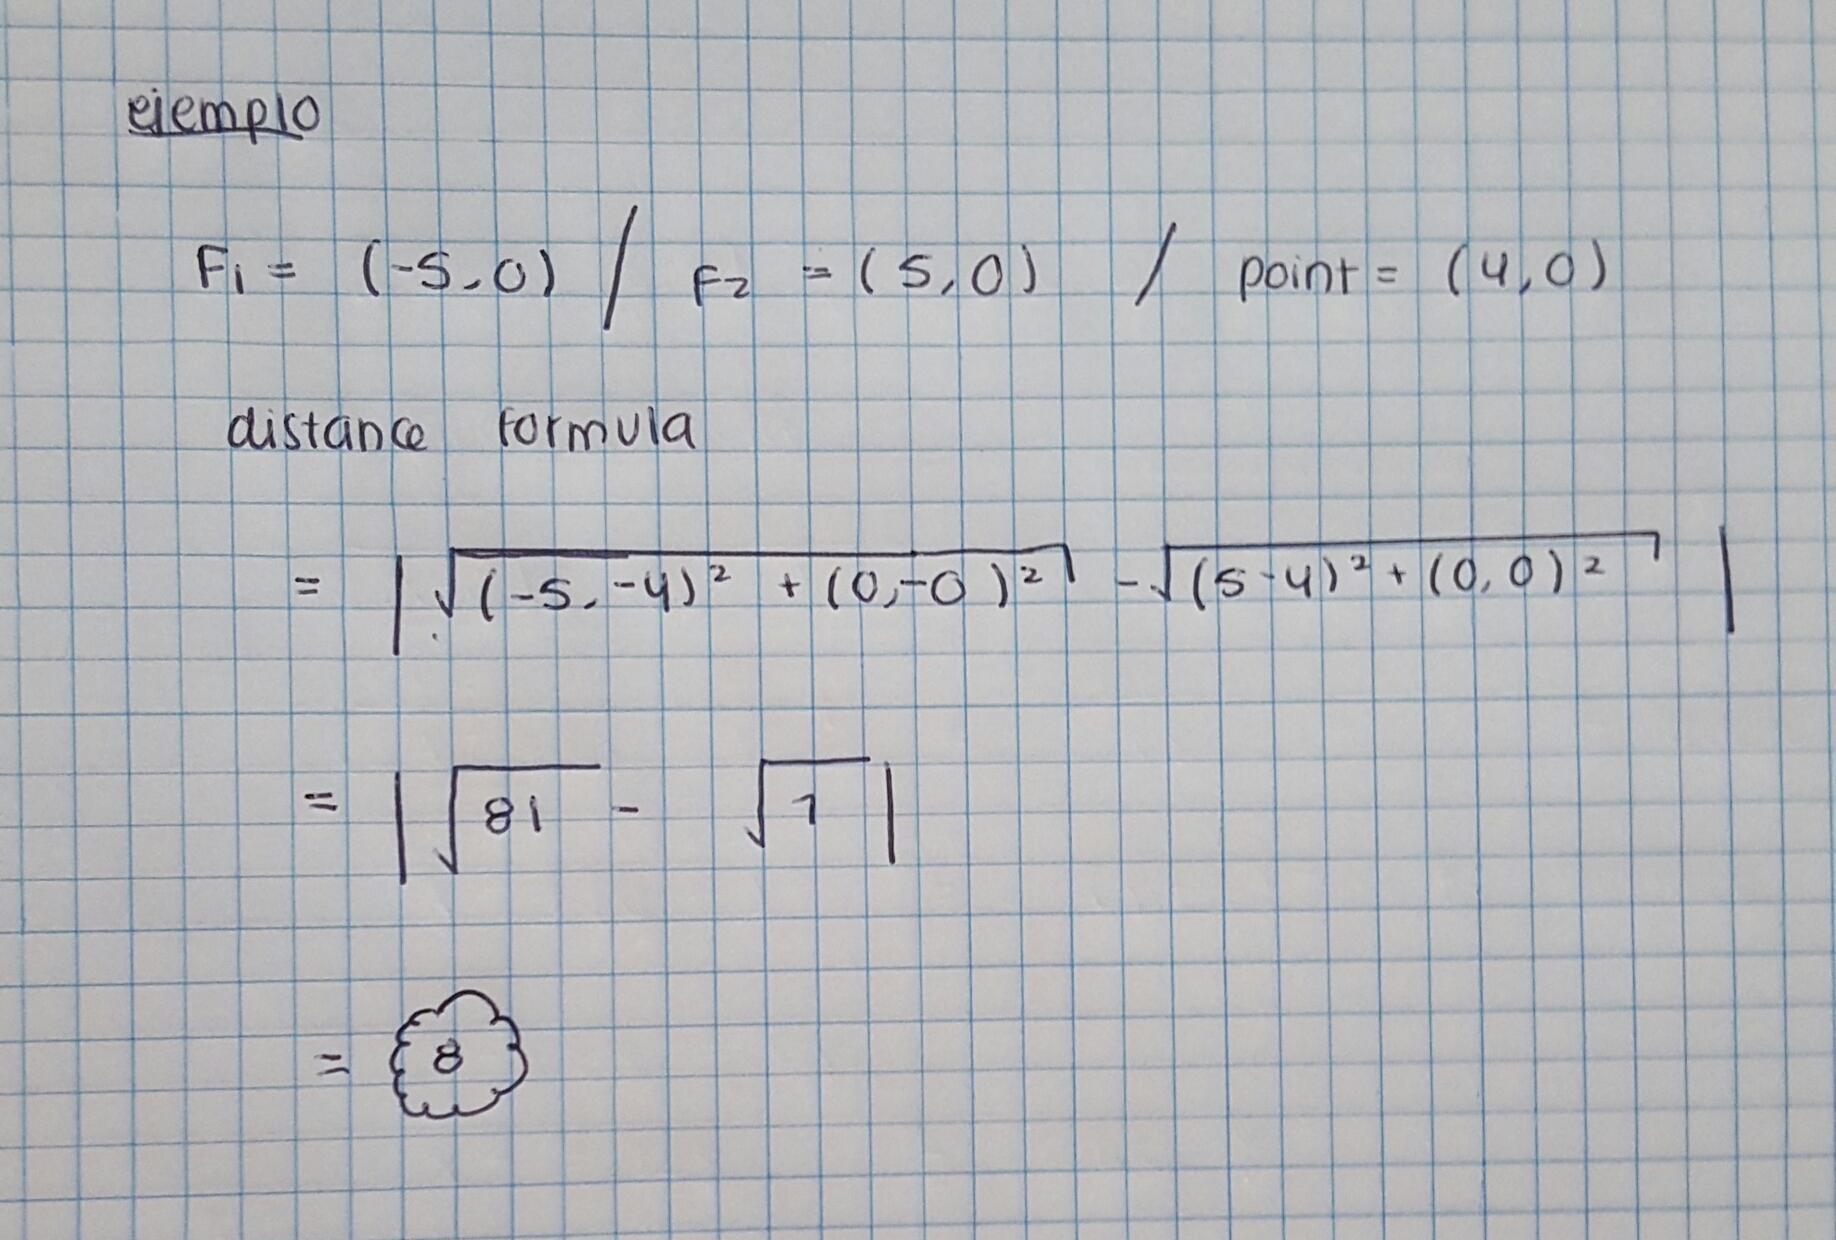 ejemplo
F₁ = (-5,0) / F₂ = (5,0) / point = (4,0)
distance formula
= | √(-5,-4)² + (0,-0)² - √(5-4)² + (0,0)² |
= | √81 - √1 |
= 8